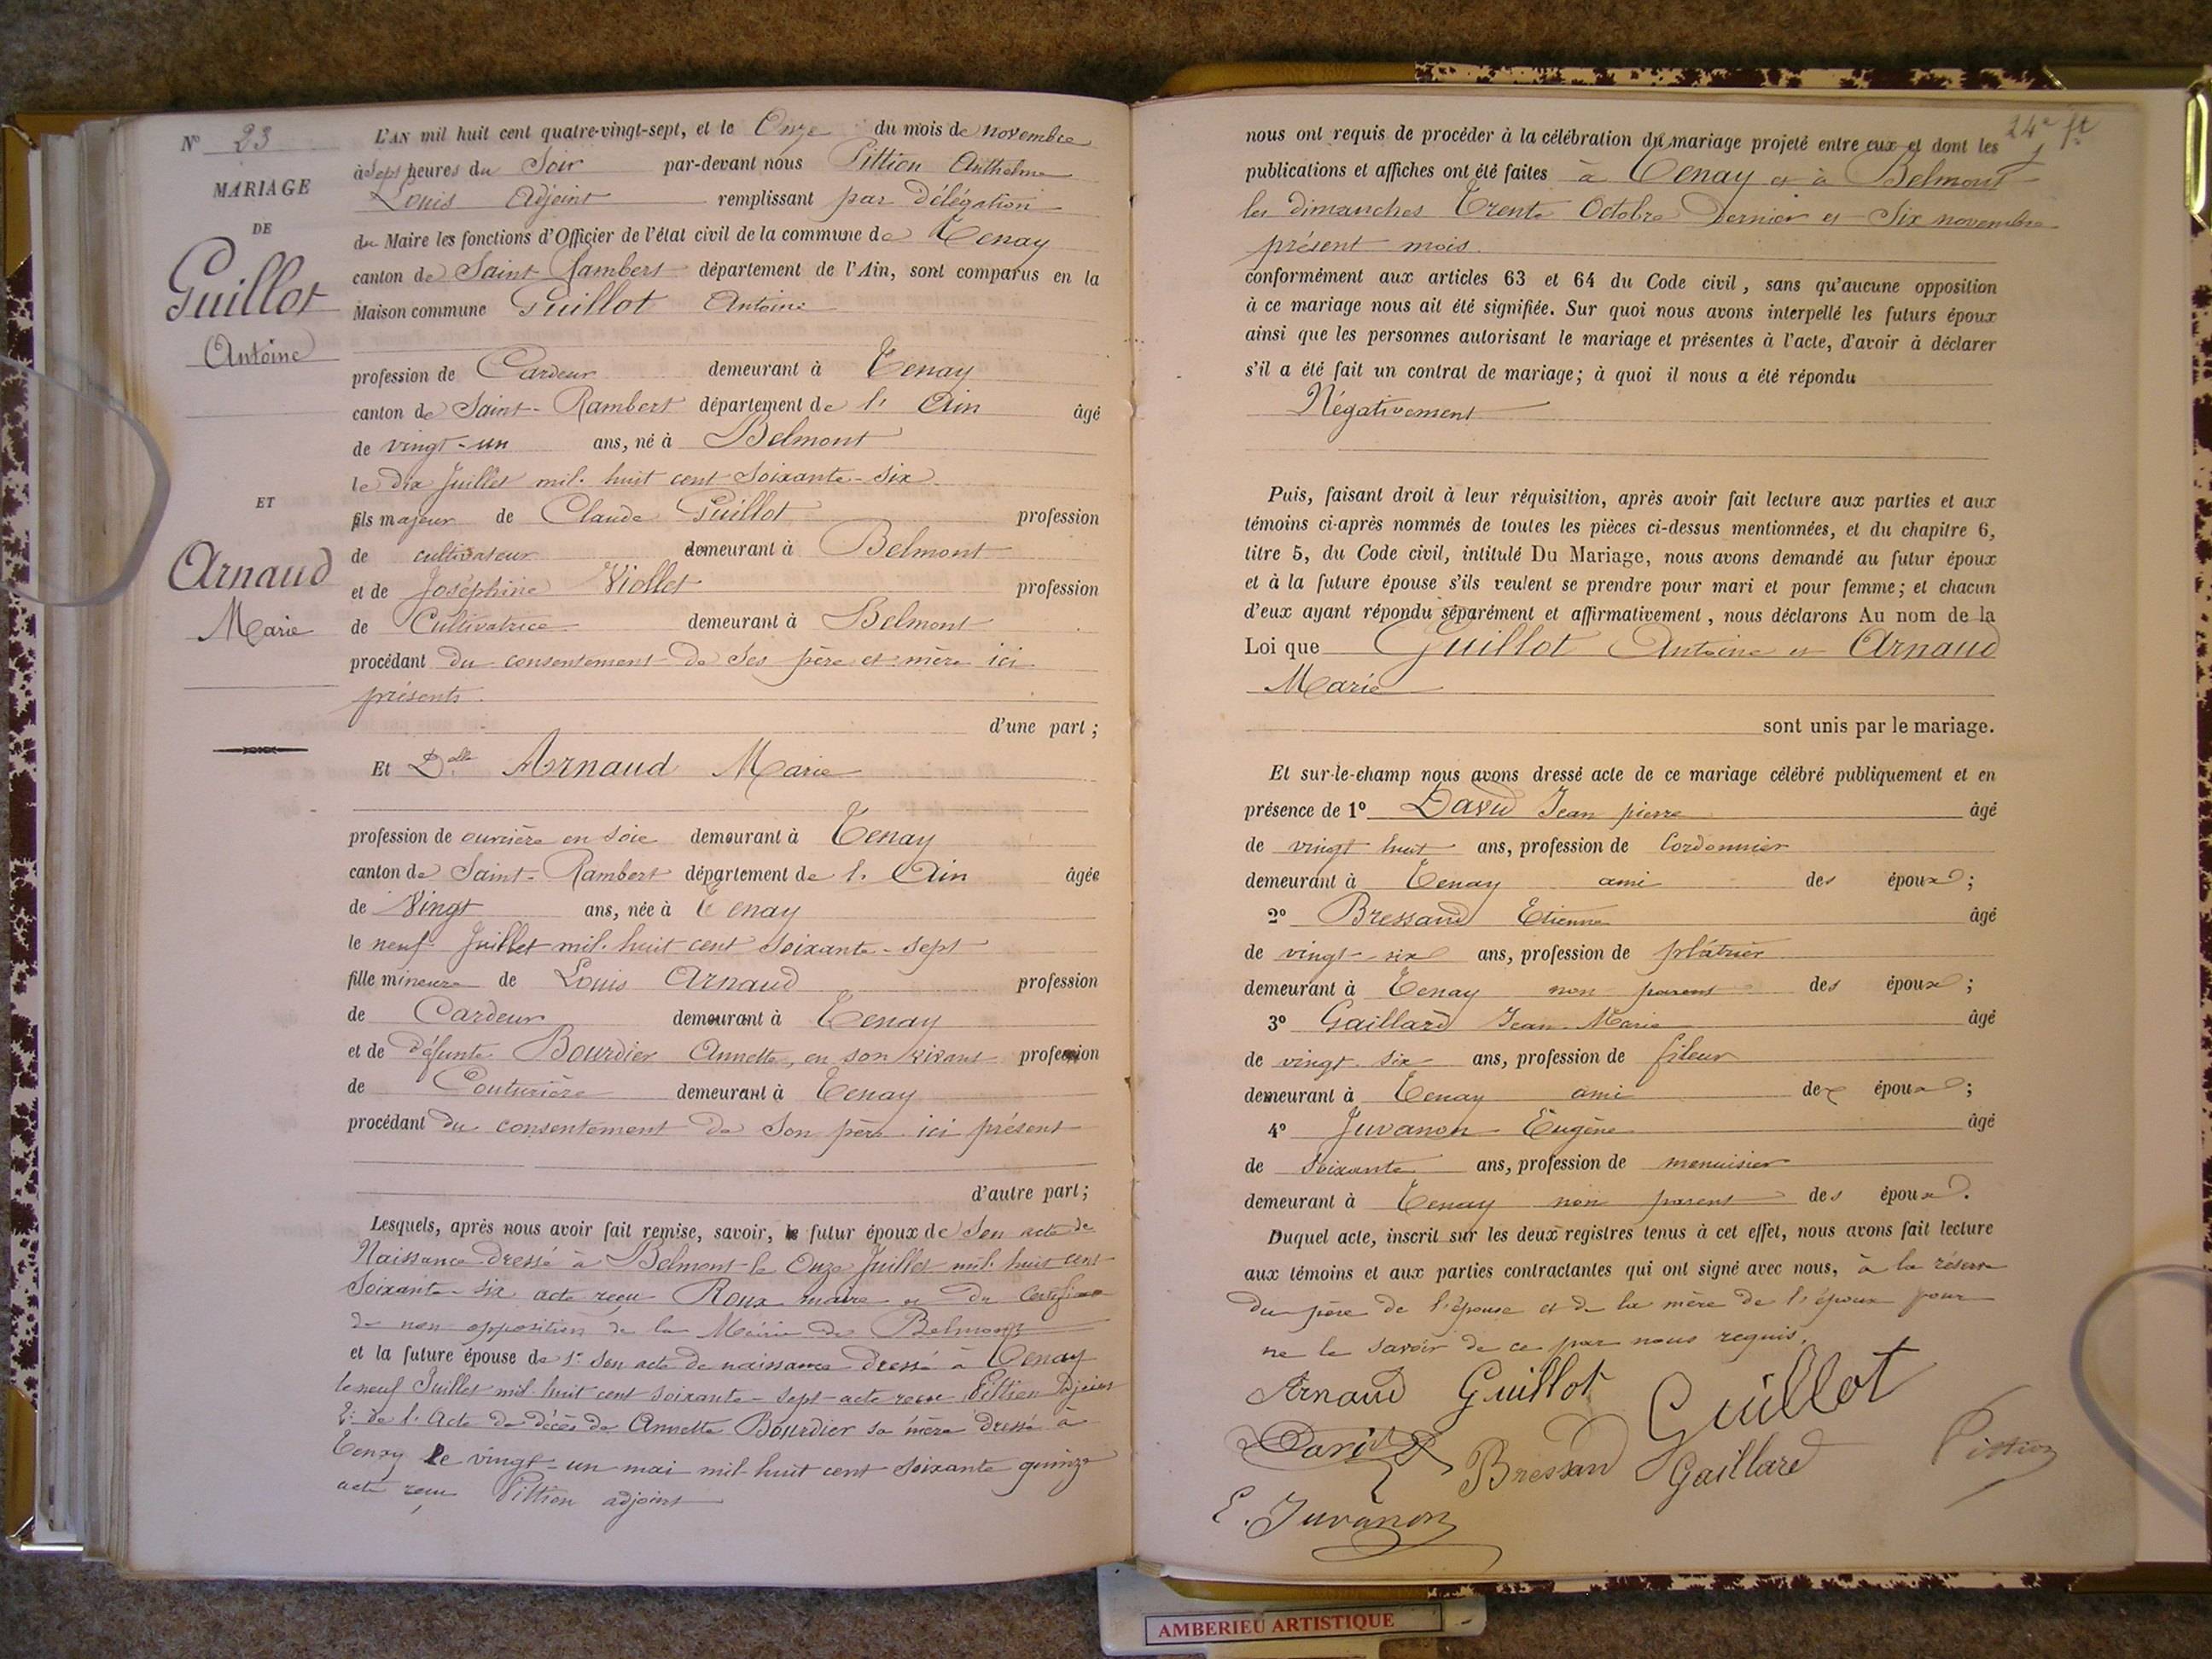 N° 23
MARIAGE
DE
Guillot
Antoine
ET
Arnaud
Marie
L'AN mil huit cent quatre-vingt-sept, et le Onze du mois de novembre
à Sept heures du Soir par-devant nous Pittion Anthelme
Louis Adjoint remplissant par Délégation
du Maire les fonctions d'Officier de l'état civil de la commune de Tenay
canton de Saint-Rambert département de l'Ain, sont comparus en la
Maison commune Guillot Antoine
profession de Cardeur demeurant à Tenay
canton de Saint-Rambert département de l'Ain âgé
de vingt-un ans, né à Belmont
le Dix Juillet mil huit cent Soixante-six
fils majeur de Claude Guillot profession
de cultivateur demeurant à Belmont
et de Joséphine Viollet profession
de Cultivatrice demeurant à Belmont
procédant du consentement de Ses père et mère ici
présents
d'une part;
Et Dlle Arnaud Marie
profession de ouvrière en soie demeurant à Tenay
canton de Saint-Rambert département de l'Ain âgée
de Vingt ans, née à Tenay
le neuf Juillet mil huit cent soixante-sept
fille mineure de Louis Arnaud profession
de Cardeur demeurant à Tenay
et de défunte Bourdier Annette, en son vivant profession
de Couturière demeurant à Tenay
procédant du consentement de Son père ici présent
d'autre part;
Lesquels, après nous avoir fait remise, savoir, le futur époux de Son acte de
Naissance dressé à Belmont le Onze Juillet mil huit cent
Soixante-six acte reçu Roux maire et du Certificat
de non opposition de la Mairie de Belmont
et la future épouse de 1° Son acte de naissance dressé à Tenay
le neuf Juillet mil huit cent soixante-sept acte reçu Pittion Adjoint
2° de l'Acte de décès de Annette Bourdier sa mère dressé à
Tenay le vingt-un mai mil huit cent Soixante quinze
acte reçu Pittion adjoint
24e ft
nous ont requis de procéder à la célébration du mariage projeté entre eux et dont les
publications et affiches ont été faites à Tenay et à Belmont
les dimanches Trente Octobre Dernier et Six novembre
présent mois
conformément aux articles 63 et 64 du Code civil, sans qu'aucune opposition
à ce mariage nous ait été signifiée. Sur quoi nous avons interpellé les futurs époux
ainsi que les personnes autorisant le mariage et présentes à l'acte, d'avoir à déclarer
s'il a été fait un contrat de mariage; à quoi il nous a été répondu
Négativement
Puis, faisant droit à leur réquisition, après avoir fait lecture aux parties et aux
témoins ci-après nommés de toutes les pièces ci-dessus mentionnées, et du chapitre 6,
titre 5, du Code civil, intitulé Du Mariage, nous avons demandé au futur époux
et à la future épouse s'ils veulent se prendre pour mari et pour femme; et chacun
d'eux ayant répondu séparément et affirmativement, nous déclarons Au nom de la
Loi que Guillot Antoine et Arnaud
Marie
sont unis par le mariage.
Et sur-le-champ nous avons dressé acte de ce mariage célébré publiquement et en
présence de 1° David Jean pierre âgé
de vingt huit ans, profession de Cordonnier
demeurant à Tenay ami des époux;
2° Bressand Etienne âgé
de vingt-six ans, profession de plâtrier
demeurant à Tenay non parent des époux;
3° Gaillard Jean-Marie âgé
de vingt six ans, profession de fileur
demeurant à Tenay ami des époux;
4° Juvanon Eugène âgé
de Soixante ans, profession de menuisier
demeurant à Tenay non parent des époux.
Duquel acte, inscrit sur les deux registres tenus à cet effet, nous avons fait lecture
aux témoins et aux parties contractantes qui ont signé avec nous, à la réserve
du père de l'épouse et de la mère de l'époux pour
ne le savoir de ce par nous requis.
Arnaud Guillot Guillot
David Bressand Gaillard Pittion
E. Juvanon
AMBERIEU ARTISTIQUE